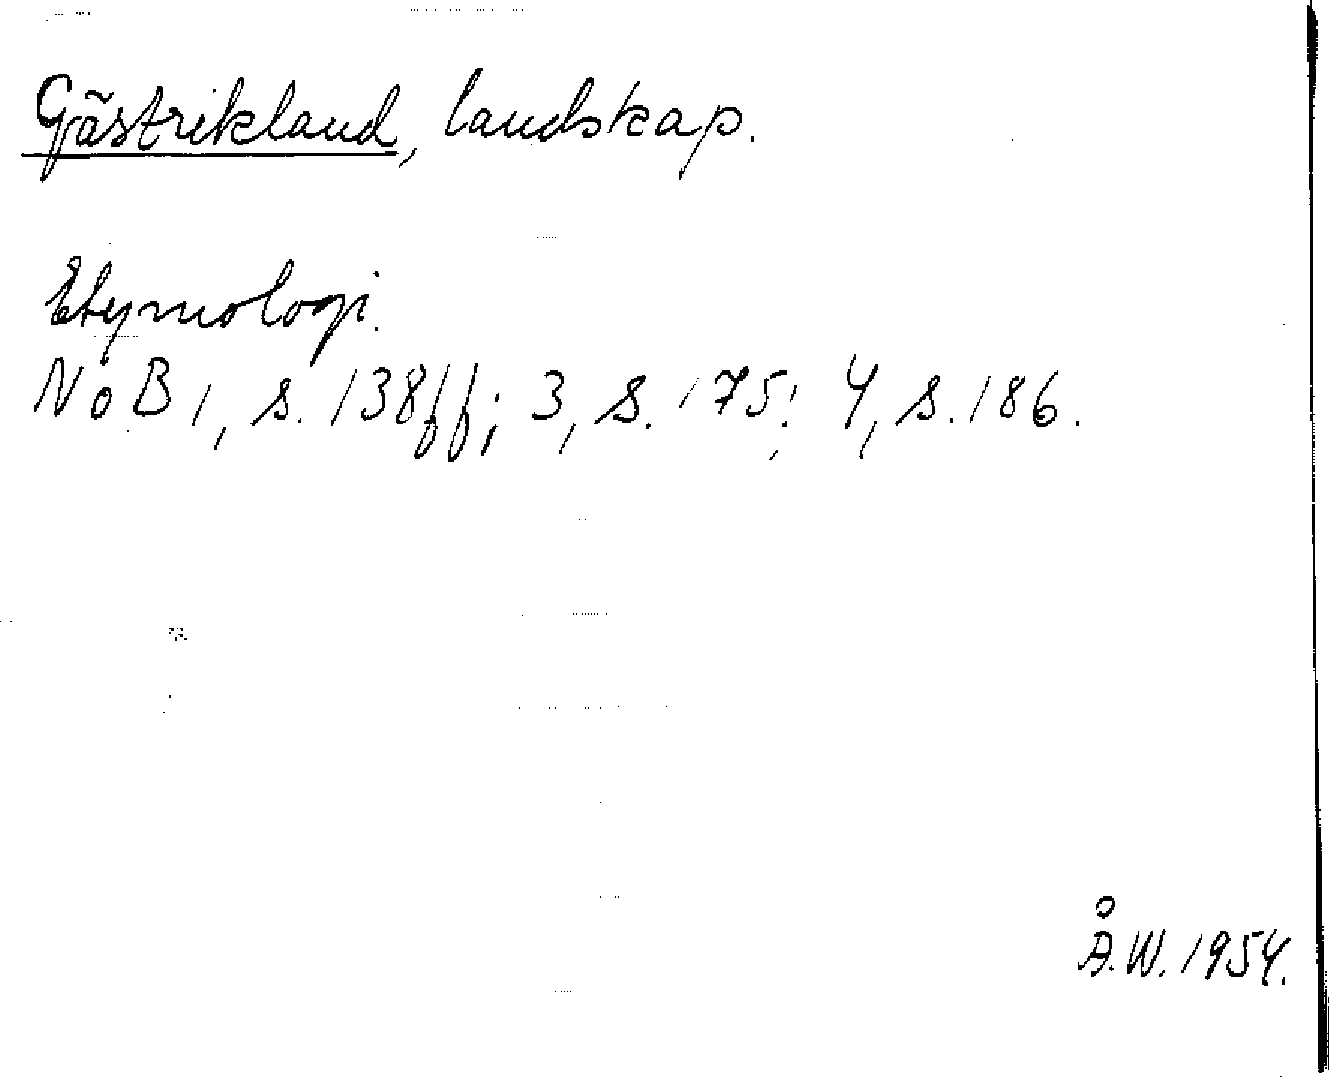 Gästrikland, landskap.
Etymologi.
NoB 1, s. 138ff; 3, s. 175; 4, s. 186.
Å.W. 1954.